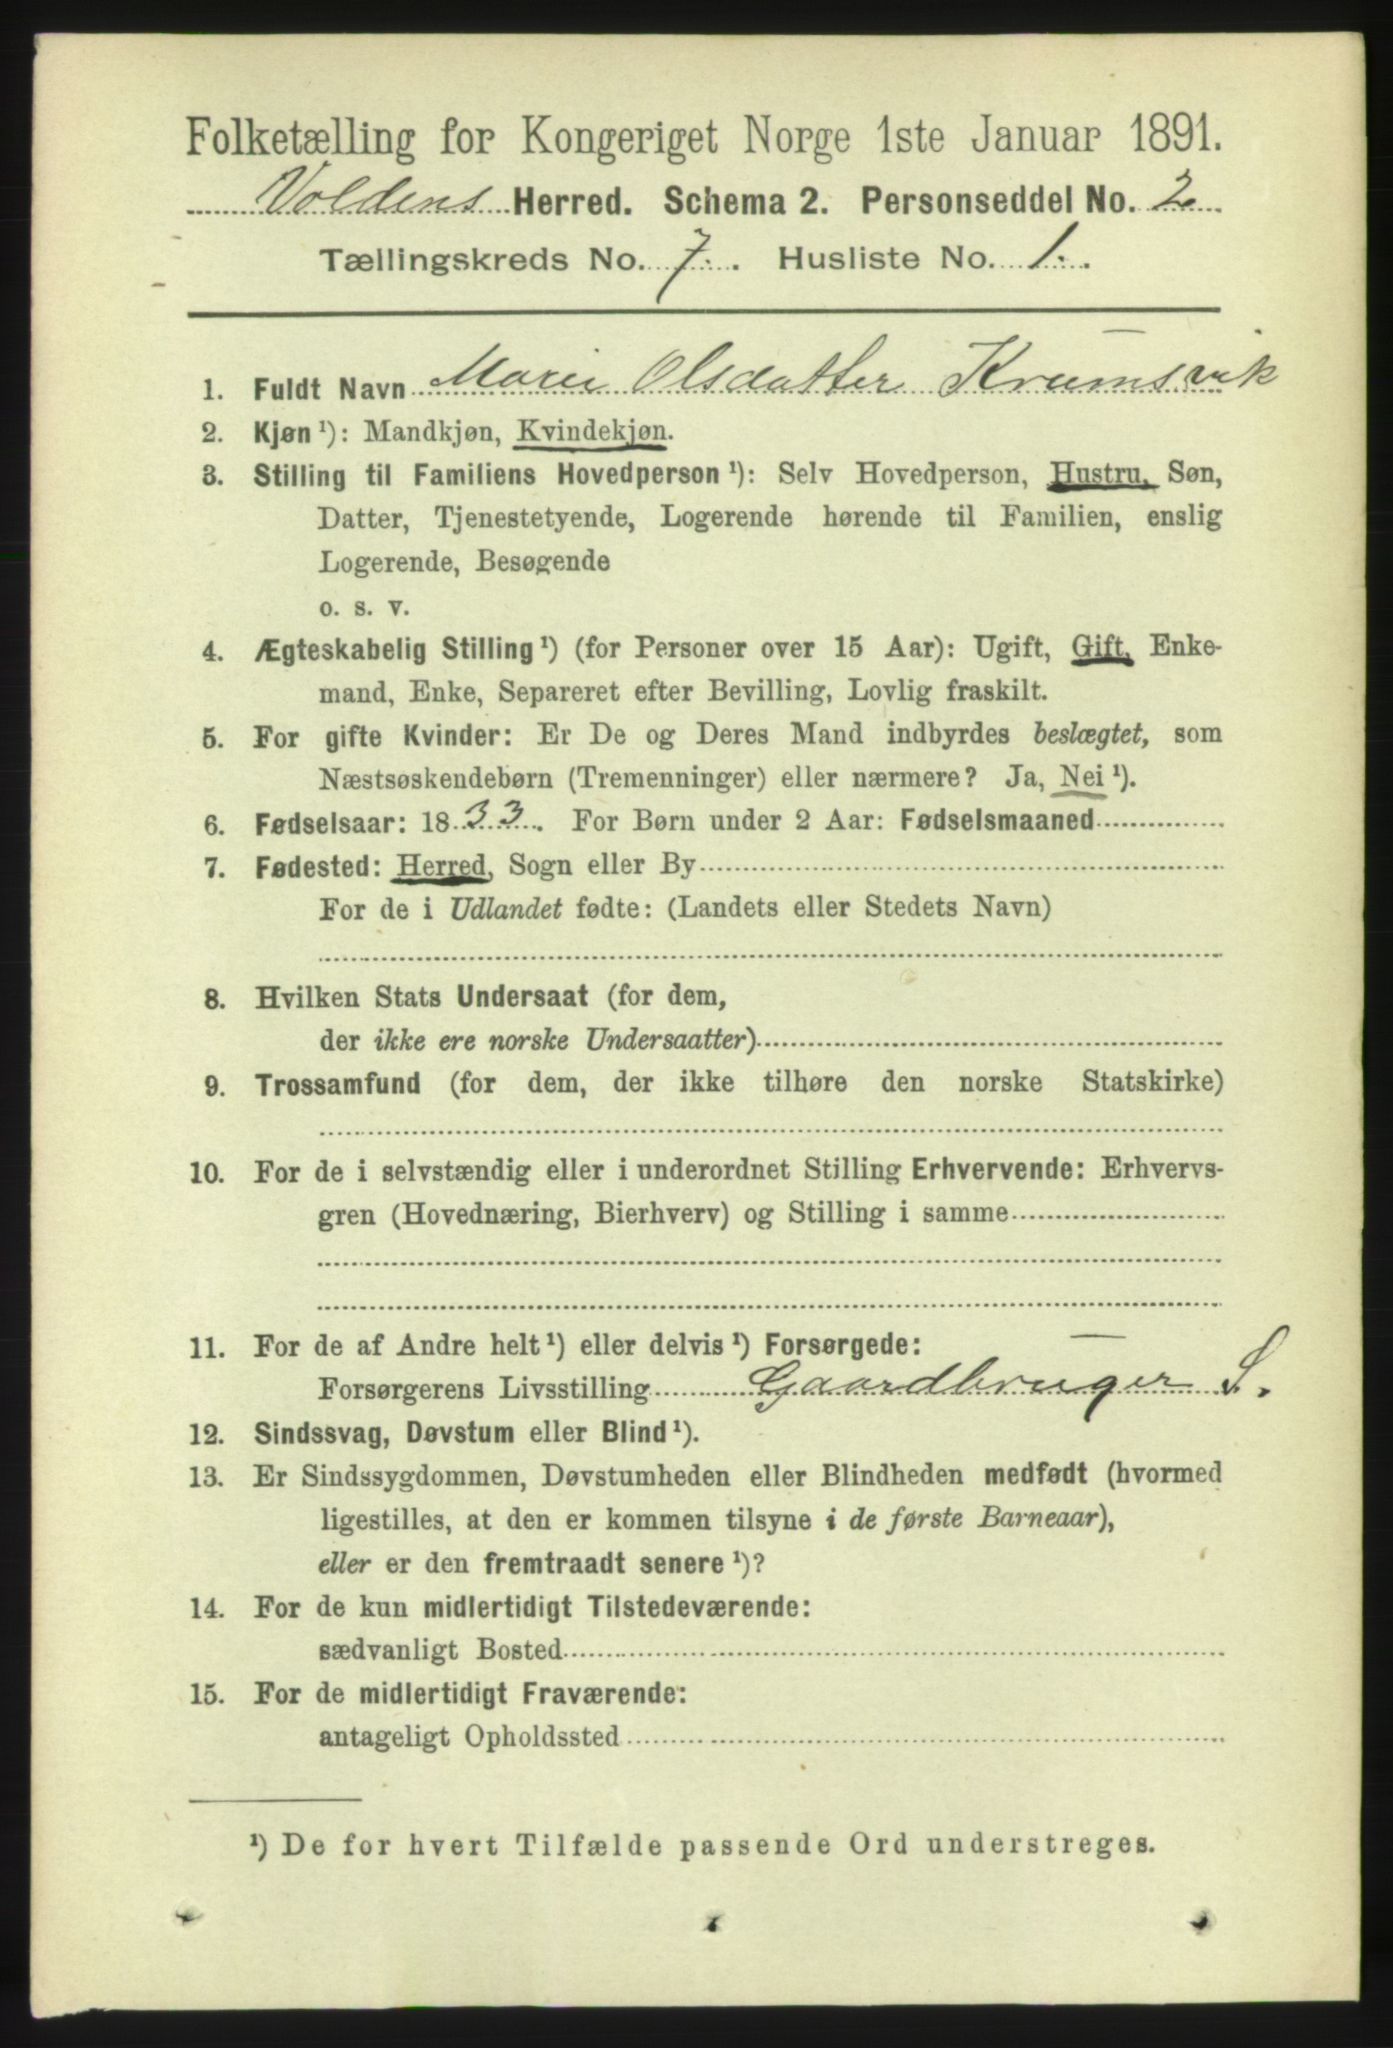 Folketælling for Kongeriget Norge 1ste Januar 1891.
Voldens Herred. Schema 2. Personseddel No. 2.
Tællingskreds No. 7. Husliste No. 1.
1. Fuldt Navn Marie Olsdatter Krumsvik
2. Kjøn ¹): Mandkjøn, Kvindekjøn.
3. Stilling til Familiens Hovedperson ¹): Selv Hovedperson, Hustru, Søn,
Datter, Tjenestetyende, Logerende hørende til Familien, enslig
Logerende, Besøgende
o. s. v.
4. Ægteskabelig Stilling ¹) (for Personer over 15 Aar): Ugift, Gift, Enke-
mand, Enke, Separeret efter Bevilling, Lovlig fraskilt.
5. For gifte Kvinder: Er De og Deres Mand indbyrdes beslægtet, som
Næstsøskendebørn (Tremenninger) eller nærmere? Ja, Nei ¹).
6. Fødselsaar: 1833. For Børn under 2 Aar: Fødselsmaaned
7. Fødested: Herred, Sogn eller By
For de i Udlandet fødte: (Landets eller Stedets Navn)
8. Hvilken Stats Undersaat (for dem,
der ikke ere norske Undersaatter)
9. Trossamfund (for dem, der ikke tilhøre den norske Statskirke)
10. For de i selvstændig eller i underordnet Stilling Erhvervende: Erhvervs-
gren (Hovednæring, Bierhverv) og Stilling i samme
11. For de af Andre helt ¹) eller delvis ¹) Forsørgede:
Forsørgerens Livsstilling Gaardbruger S.
12. Sindssvag, Døvstum eller Blind ¹).
13. Er Sindssygdommen, Døvstumheden eller Blindheden medfødt (hvormed
ligestilles, at den er kommen tilsyne i de første Barneaar),
eller er den fremtraadt senere ¹)?
14. For de kun midlertidigt Tilstedeværende:
sædvanligt Bosted
15. For de midlertidigt Fraværende:
antageligt Opholdssted
¹) De for hvert Tilfælde passende Ord understreges.